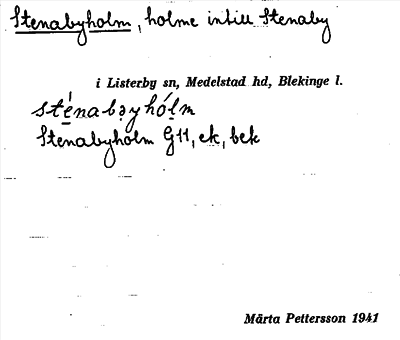 Stenabyholm, holme intill Stenaby
i Listerby sn, Medelstad hd, Blekinge l.
sténabəyhólm
Stenabyholm G11, ek, bek
Märta Pettersson 1941